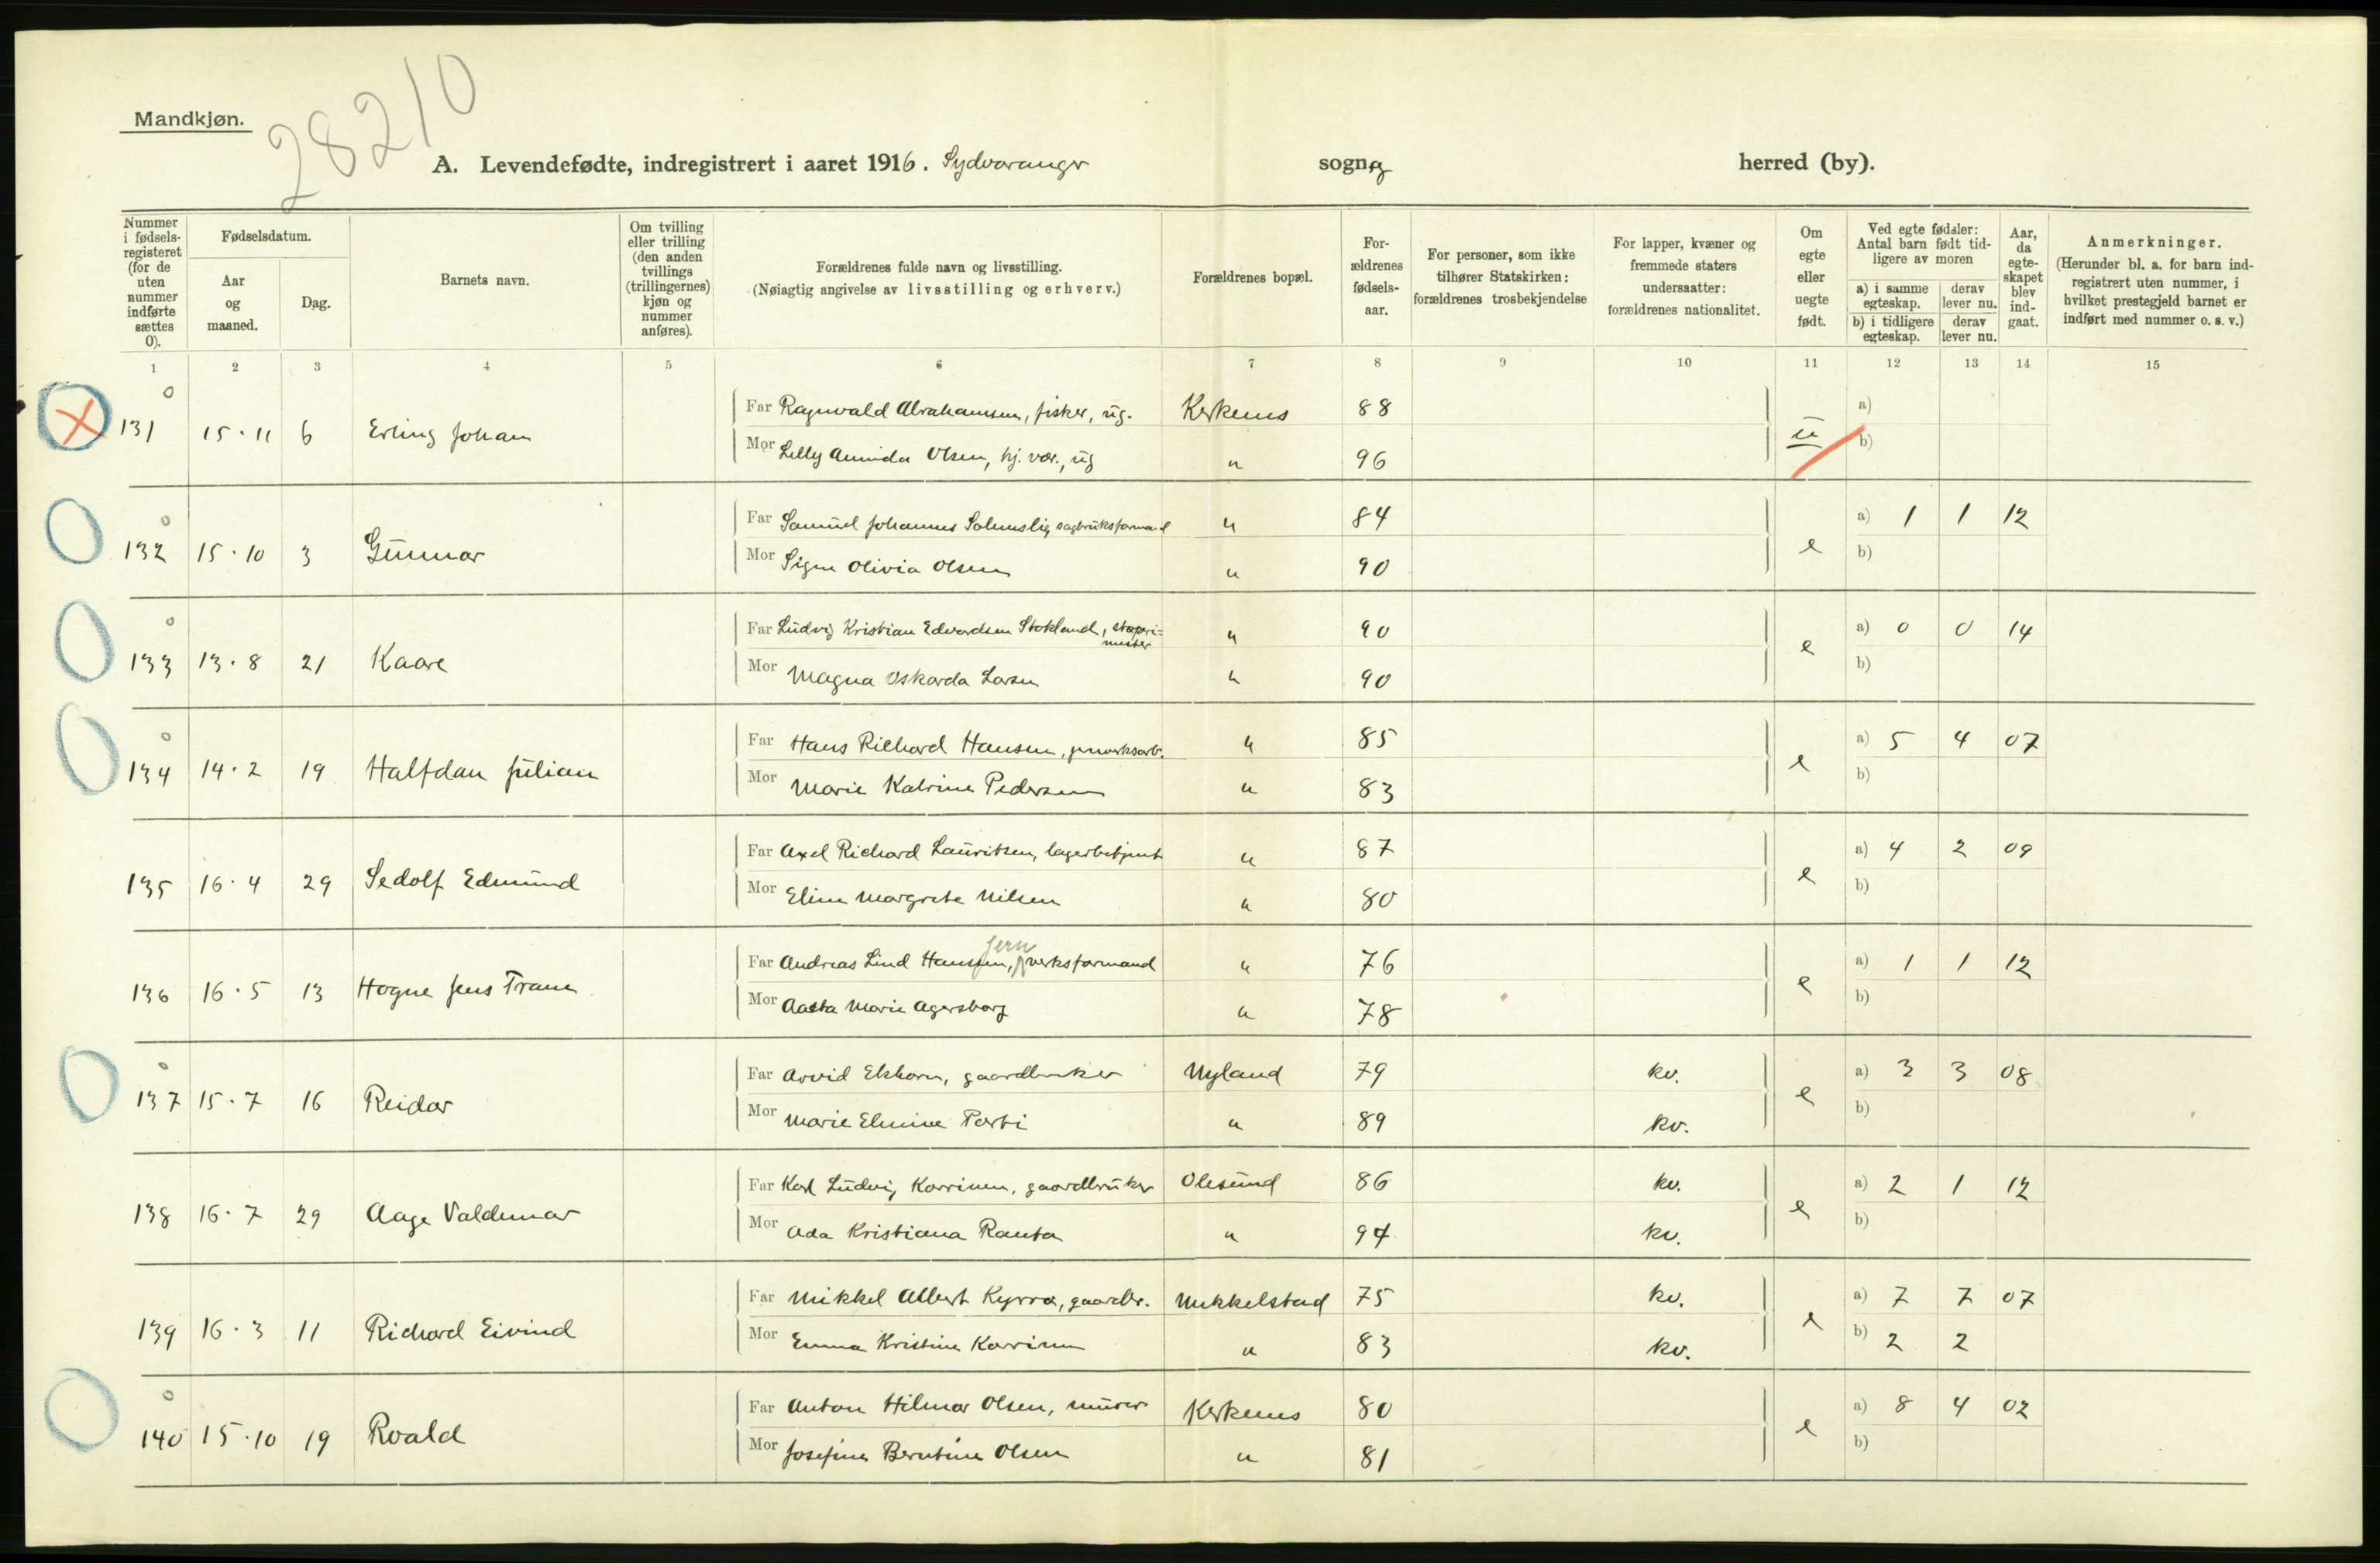 28210
Mandkjøn.
A. Levendefødte, indregistrert i aaret 1916. Sydvaranger sogn og herred (by).
Nummer i fødsels-registeret (for de uten nummer indførte sættes 0).
Fødselsdatum.
Aar og maaned.
Dag.
Barnets navn.
Om tvilling eller trilling (den anden tvillings (trillingernes) kjøn og nummer anføres).
Forældrenes fulde navn og livsstilling.
(Nøiagtig angivelse av livsstilling og erhverv.)
Forældrenes bopæl.
For-ældrenes fødsels-aar.
For personer, som ikke tilhører Statskirken: forældrenes trosbekjendelse
For lapper, kvæner og fremmede staters undersaatter: forældrenes nationalitet.
Om egte eller uegte født.
Ved egte fødsler: Antal barn født tid-ligere av moren
a) i samme egteskap. derav lever nu.
b) i tidligere egteskap. derav lever nu.
Aar, da egte-skapet blev ind-gaat.
Anmerkninger.
(Herunder bl. a. for barn ind-registrert uten nummer, i hvilket prestegjeld barnet er indført med nummer o. s. v.)
1 2 3 4 5 6 7 8 9 10 11 12 13 14 15
0
131 15·11 6 Erling Johan Far Ragnvald Abrahamsen, fisker, ug. Kerkenes 88 u a)
Mor Lilly Aminda Olsen, hj. vær., ug " 96 b)
0
132 15·10 3 Gunnar Far Samuel Johannes Solemslig sagbruksformand " 84 e a) 1 1 12
Mor Signe Olivia Olsen " 90 b)
0
133 13·8 21 Kaare Far Ludvig Kristian Edvardsen Stokland, " 90 e a) 0 0 14
Mor Magna Oskarda Larsen " 90 b)
0
134 14·2 19 Halfdan Julian Far Hans Richard Hansen, " 85 e a) 5 4 07
Mor Marie Katrine Pedersen " 83 b)
135 16·4 29 Sedolf Edmund Far Axel Richard Lauritsen, lagerbetjent " 87 e a) 4 2 09
Mor Eline Margrete Nilsen " 80 b)
136 16·5 13 Hogne Jens Trane Far Andreas Lind Hansen, jernverksformand " 76 e a) 1 1 12
Mor Aasta Marie Agersborg " 78 b)
0
137 15·7 16 Reidar Far Arvid Ekhorn, gaardbruker Nyland 79 kv. e a) 3 3 08
Mor Marie Elmine Parti " 89 kv. b)
138 16·7 29 Aage Valdemar Far Karl Ludvig Karrinen, gaardbruker Olesund 86 kv. e a) 2 1 12
Mor Ada Kristiana Ranta " 94 kv. b)
139 16·3 11 Richard Eivind Far Mikkel Albert Kyrrø, gaardbr. Mikkelstad 75 kv. e a) 7 7 07
Mor Emma Kristine Karrinen " 83 kv. b) 2 2
0
140 15·10 19 Roald Far Anton Hilmar Olsen, murer Kerkenes 80 e a) 8 4 02
Mor Josefine Berntine Olsen " 81 b)